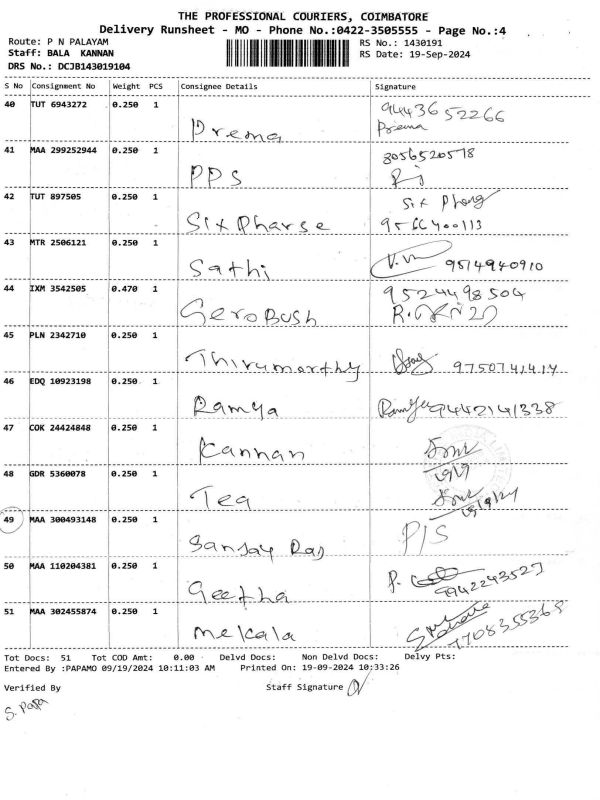 THE PROFESSIONAL COURIERS, COIMBATORE
Delivery Runsheet - MO - Phone No.:0422-3505555 - Page No.:4
Route: P N PALAYAM RS No.: 1430191
Staff: BALA KANNAN RS Date: 19-Sep-2024
DRS No.: DCJB143019104
S No Consignment No Weight PCS Consignee Details Signature
40 TUT 6943272 0.250 1 Prema 9443652266
Prema
41 MAA 299252944 0.250 1 PPS 8056520578
42 TUT 897505 0.250 1 Six Pharse Six
43 MTR 2506121 0.250 1 Sathi 9514940910
44 IXM 3542505 0.470 1 GeroBush 9524498504
45 PLN 2342710 0.250 1 Thirumorthy 9750741414
46 EDQ 10923198 0.250 1 Ramya Ramya 9442141338
47 COK 24424848 0.250 1 Kannan
19/9
48 GDR 5360078 0.250 1 Tea
19/9/24
49 MAA 300493148 0.250 1 Sanjay Raj P/S
50 MAA 110204381 0.250 1 Geetha 9942243527
51 MAA 302455874 0.250 1 Mekala 7708355368
Tot Docs: 51 Tot COD Amt: 0.00 Delvd Docs: Non Delvd Docs: Delvy Pts:
Entered By :PAPAMO 09/19/2024 10:11:03 AM Printed On: 19-09-2024 10:33:26
Verified By Staff Signature
S. Papa